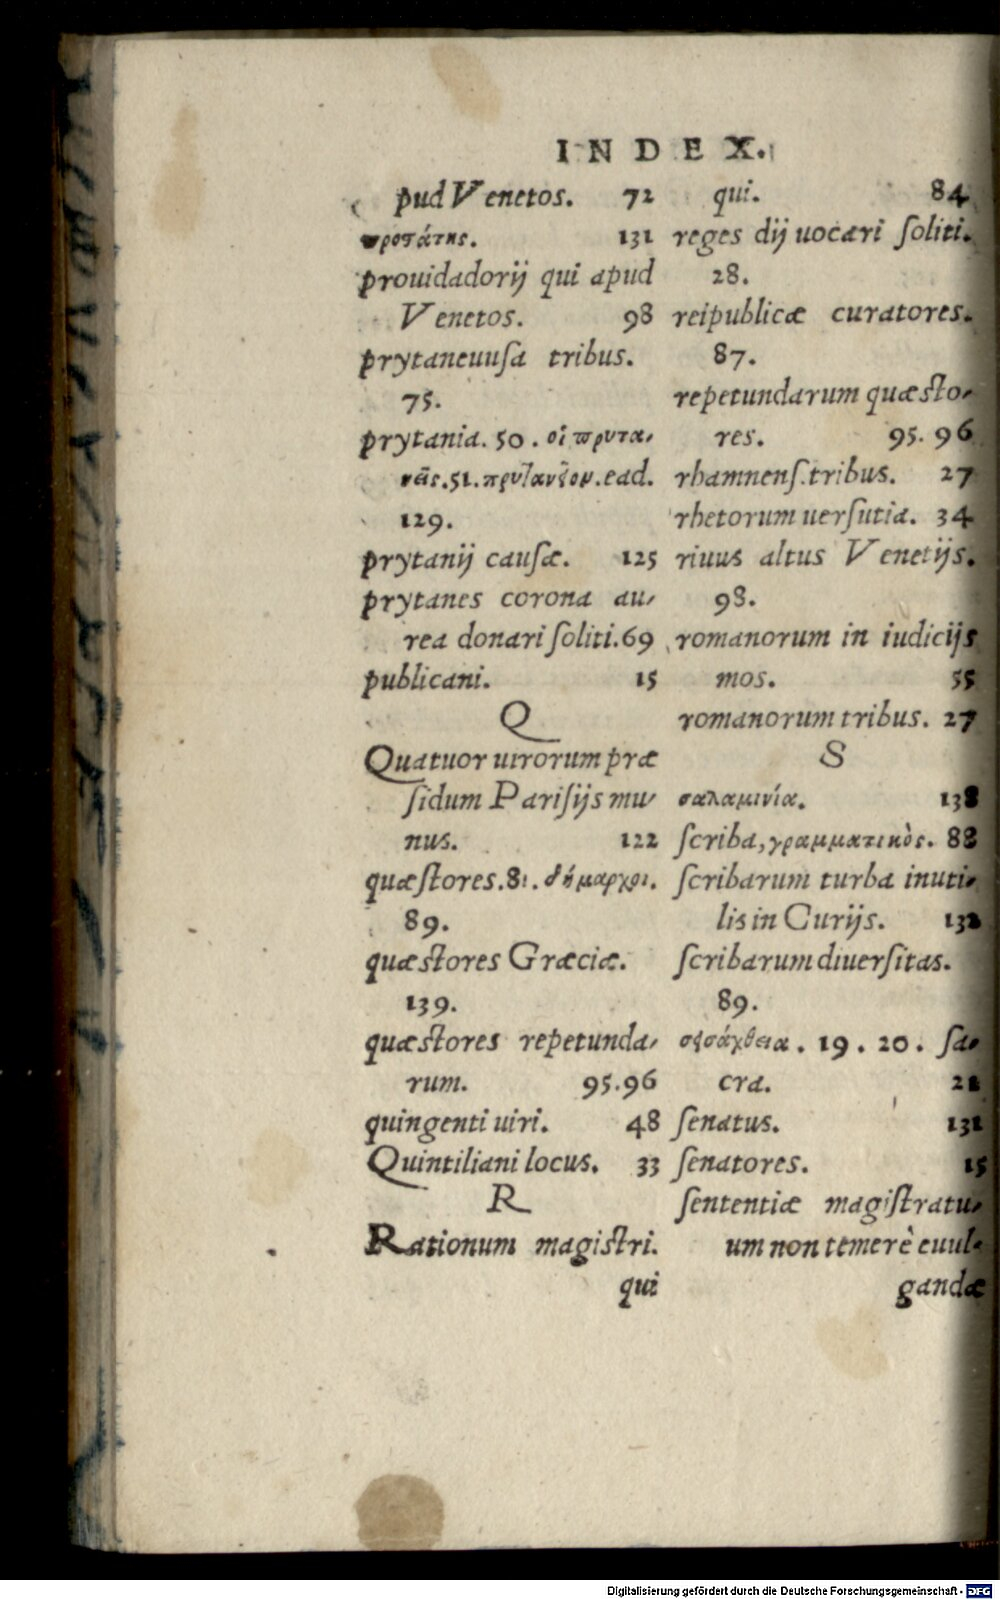 INDEX.
pud Venetos. 72
προστάτης. 131
prouidadorij qui apud
Venetos. 98
prytaneuuſa tribus.
75.
prytania. 50. οἱ πρυτα-
νεῖς. 51. πρυτανεῖον. ead.
129.
prytanij cauſæ. 125
prytanes corona au-
rea donari ſoliti. 69
publicani. 15
Q
Quatuor uirorum præ
ſidum Pariſijs mu-
nus. 122
quæſtores. 81. δήμαρχοι.
89.
quæſtores Græciæ.
139.
quæſtores repetunda-
rum. 95.96
quingenti uiri. 48
Quintiliani locus. 33
R
Rationum magiſtri.
qui
qui. 84
reges dij uocari ſoliti.
28.
reipublicæ curatores.
87.
repetundarum quæſto-
res. 95. 96
rhamnenſ. tribus. 27
rhetorum uerſutia. 34
riuus altus Venetijs.
98.
romanorum in iudicijs
mos. 55
romanorum tribus. 27
S
σαλαμινία. 138
ſcriba, γραμματικὸς. 88
ſcribarum turba inuti-
lis in Curijs. 132
ſcribarum diuerſitas.
89.
σεισάχθεια. 19. 20. ſa-
cra. 21
ſenatus. 131
ſenatores. 15
ſententiæ magiſtratu-
um non temerè euul-
gandæ
Digitalisierung gefördert durch die Deutsche Forschungsgemeinschaft - DFG